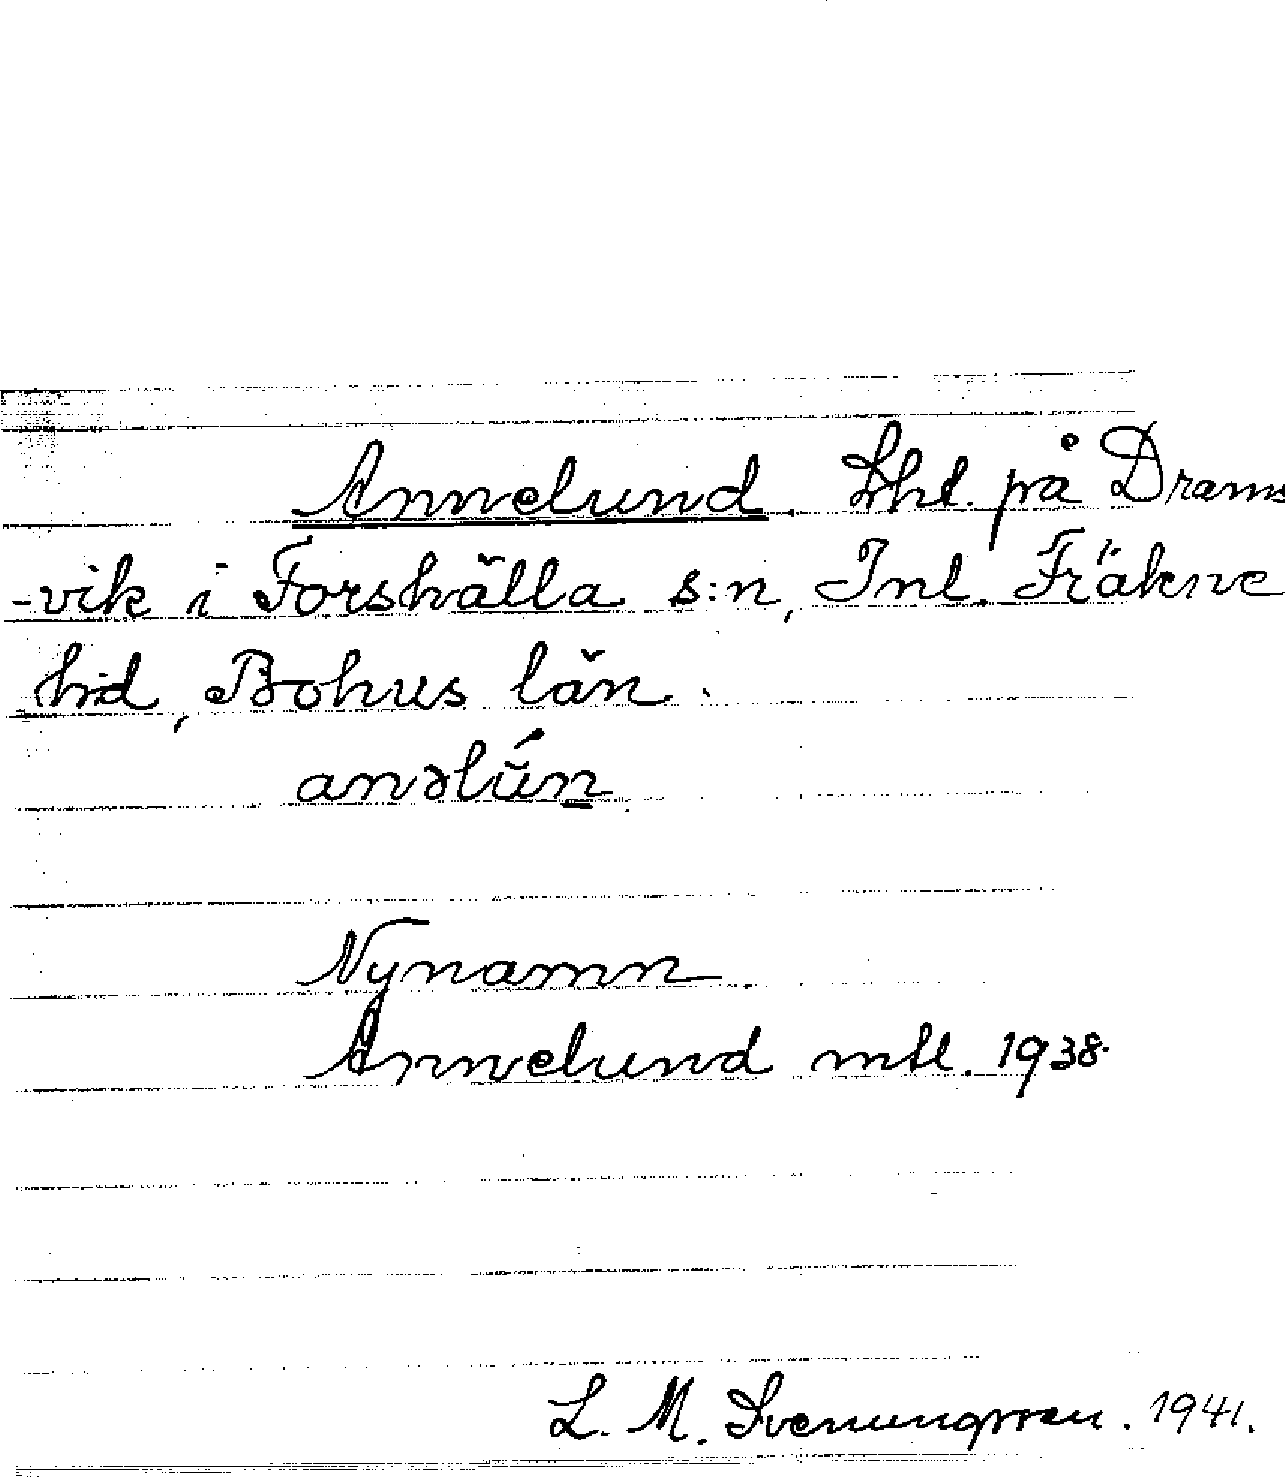 Annelund. Lht. på Drams
-vik i Forshälla s:n, Inl. Fräkne
hd, Bohus län.
anəlún
Nynamn
Annelund mtl. 1938.
L. M. Svenungsson. 1941.